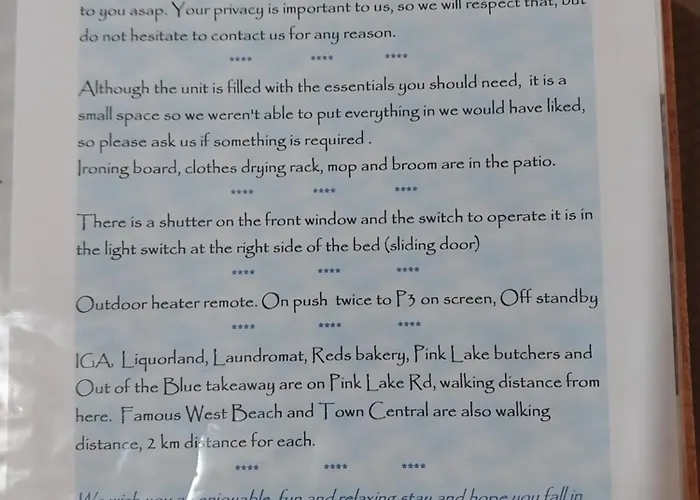 to you asap. Your privacy is important to us, so we will respect that, but
do not hesitate to contact us for any reason.
**** **** ****
Although the unit is filled with the essentials you should need, it is a
small space so we weren't able to put everything in we would have liked,
so please ask us if something is required .
Ironing board, clothes drying rack, mop and broom are in the patio.
**** **** ****
There is a shutter on the front window and the switch to operate it is in
the light switch at the right side of the bed (sliding door)
**** **** ****
Outdoor heater remote. On push twice to P3 on screen, Off standby
**** **** ****
IGA, Liquorland, Laundromat, Reds bakery, Pink Lake butchers and
Out of the Blue takeaway are on Pink Lake Rd, walking distance from
here. Famous West Beach and Town Central are also walking
distance, 2 km distance for each.
**** **** ****
We wish you a enjoyable, fun and relaxing stay and hope you fall in